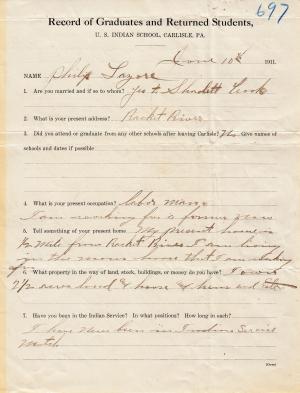 697
Record of Graduates and Returned Students,
U. S. INDIAN SCHOOL, CARLISLE, PA.
June 10th 1911.
NAME Philip Lazore
1. Are you married and if so to whom? Yes
2. What is your present address? Racket River
3. Did you attend or graduate from any other schools after leaving Carlisle? No. Give names
of schools and dates if possible
4. What is your present occupation? labor man
I am working for a former
5. Tell something of your present home. My present home is
1/2 mile from Racket River I am living
in the house that I am working
6. What property in the way of land, stock, buildings, or money do you have? I own
2 1/2 land & house & hens and
7. Have you been in the Indian Service? In what positions? How long in each?
I have never been in Indian Service
(Over)